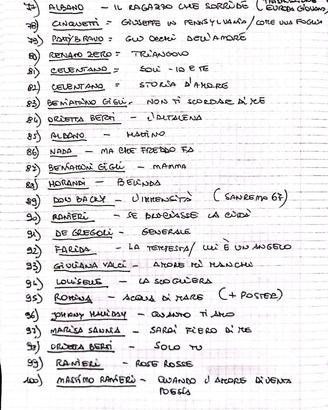 77) ALBANO - IL RAGAZZO CHE SORRIDE (
EUROPA GIOVANI
78) CINQUETTI = GIUSEPPE IN PENNSYLVANIA / COME UNA FOGLIA
79) PATTY BRAVO = GLI OCCHI DELL'AMORE
80) RENATO ZERO = TRIANGOLO
81) CELENTANO = SOLI - IO E TE
82) CELENTANO = STORIA D'AMORE
83) BENIAMINO GIGLI - NON TI SCORDAR DI ME
84) ORIETTA BERTI - L'ALTALENA
85) ALBANO - MATTINO
86) NADA - MA CHE FREDDO FA
87) BENIAMINO GIGLI - MAMMA
88) MORANDI - BELINDA
89) DON BACKY - L'IMMENSITÀ (SANREMO 67)
90) RANIERI - SE BRUCIASSE LA CITTÀ
91) DE GREGORI - GENERALE
92) FARIDA - LA TEMPESTA / LUI È UN ANGELO
93) GIULIANA VALCI - AMORE MI MANCHI
94) LOUISELLE - LA SCOGLIERA
95) ROMINA - ACQUA DI MARE (+ POSTER)
96) JOHNNY HALLIDAY - QUANTO TI AMO
97) MARISA SANNIA - SARAI FIERO DI ME
98) ORIETTA BERTI - SOLO TU
99) RANIERI - ROSE ROSSE
100) MASSIMO RANIERI - QUANDO L'AMORE DIVENTA
POESIA